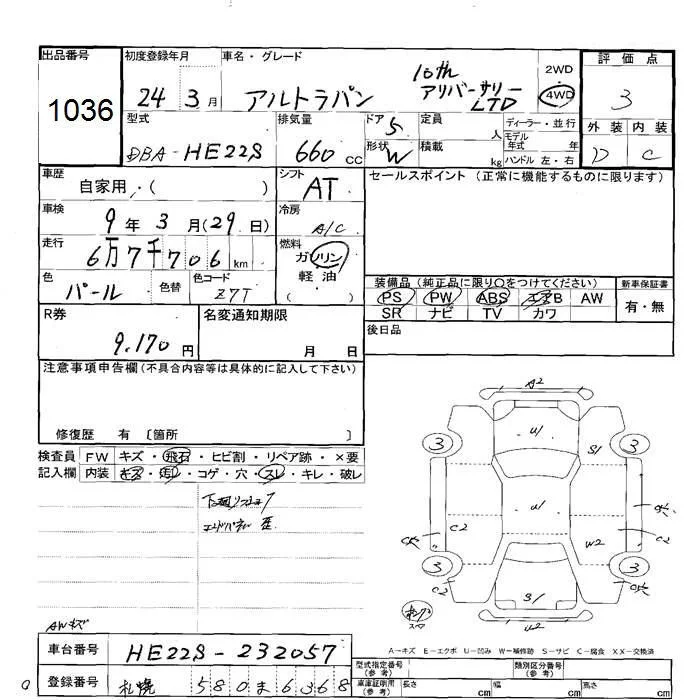 出品番号 初度登録年月 車名・グレード 評価点
1036
24 3月 アルトラパン 10th アニバーサリー LTD 2WD 4WD 3
型式 排気量 ドア 5 定員 人 ディーラー・並行 外装 内装
DBA-HE22S 660 CC 形状 W 積載 kg モデル年式 年 ハンドル 左・右 D C
車歴 シフト セールスポイント (正常に機能するものに限ります)
自家用・( ) AT
車検 冷房
9年3月(29日) A/C
走行 燃料
6万7千706km ガソリン
色 色替 色コード 軽油
パール Z7T ( )
装備品(純正品に限り○をつけてください) 新車保証書
PS PW ABS エアB AW 有・無
SR ナビ TV カワ
R券 名変通知期限 後日品
9,170円 月 日
注意事項申告欄(不具合内容等は具体的に記入して下さい)
修復歴 有 〔箇所 〕
検査員 FW キズ・飛石・ヒビ割・リペア跡・×要
記入欄 内装 キズ・汚れ・コゲ・穴・スレ・キレ・破レ
A2
U1
3 3
S1
U1
C2
W2 C2
3 3
C2 S1 C2
U2
A-キズ E-エクボ U-凹み W-補修跡 S-サビ C-腐食 XX-交換済
AWキズ
車台番号 HE22S-232057
登録番号 札幌 580 ま 6368
型式指定番号(参考) 類別区分番号(参考)
車庫証明用(参考) 長さ cm 幅 cm 高さ cm